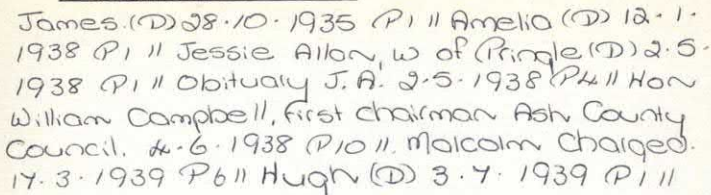 James. (D) 28.10.1935 P1 // Amelia (D) 12.1.
1938 P1 // Jessie Allan, w of Pringle (D) 2.5.
1938 P1 // Obituary J.A. 2.5.1938 P4 // Hon
William Campbell, first chairman Ash County
Council. 4.6.1938 P10 //. Malcolm Charged.
17.3.1939 P6 // Hugh (D) 3.7.1939 P1 //